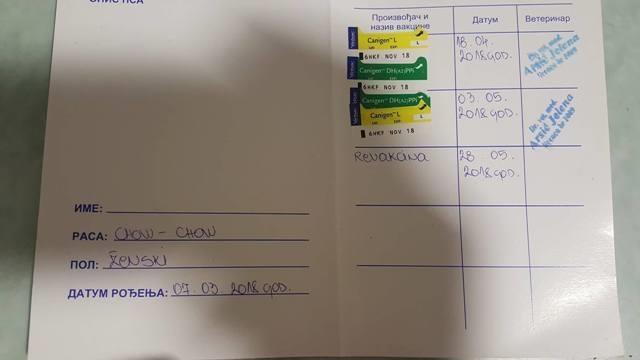 ОПИС ПСА
ИМЕ:
РАСА: CHOW - CHOW
ПОЛ: ŽENSKI
ДАТУМ РОЂЕЊА: 07. 03. 2018 god.
Произвођач и
назив вакцине
Датум
Ветеринар
Canigen L
6HKF NOV 18
Canigen DH(A2)PPi
18. 04.
2018 god.
Dr. vet. med.
Arsić Jelena
6HKF NOV 18
Canigen DH(A2)PPi
Canigen L
L
6HKF NOV 18
03. 05.
2018 god.
Dr. vet. med.
Arsić Jelena
Revakcina
28 05.
2018 god.